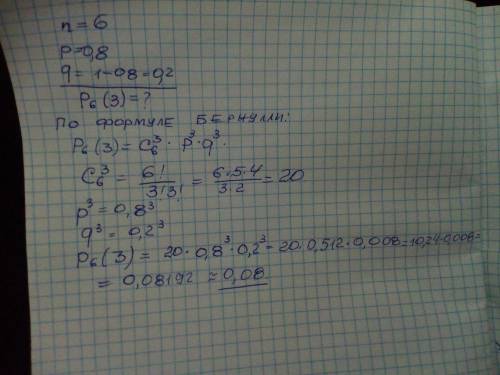 n = 6
p=0,8
q = 1-0,8=0,2
P₆(3)=?
По формуле Бернулли:
P₆(3)=C₆³ · p³·q³.
C₆³ = 6!/3!3! = 6·5·4/3·2 = 20
p³ = 0,8³
q³ = 0,2³
P₆(3) = 20·0,8³·0,2³=20·0,512·0,008=10,24·0,008=
= 0,08192 ≈ 0,08